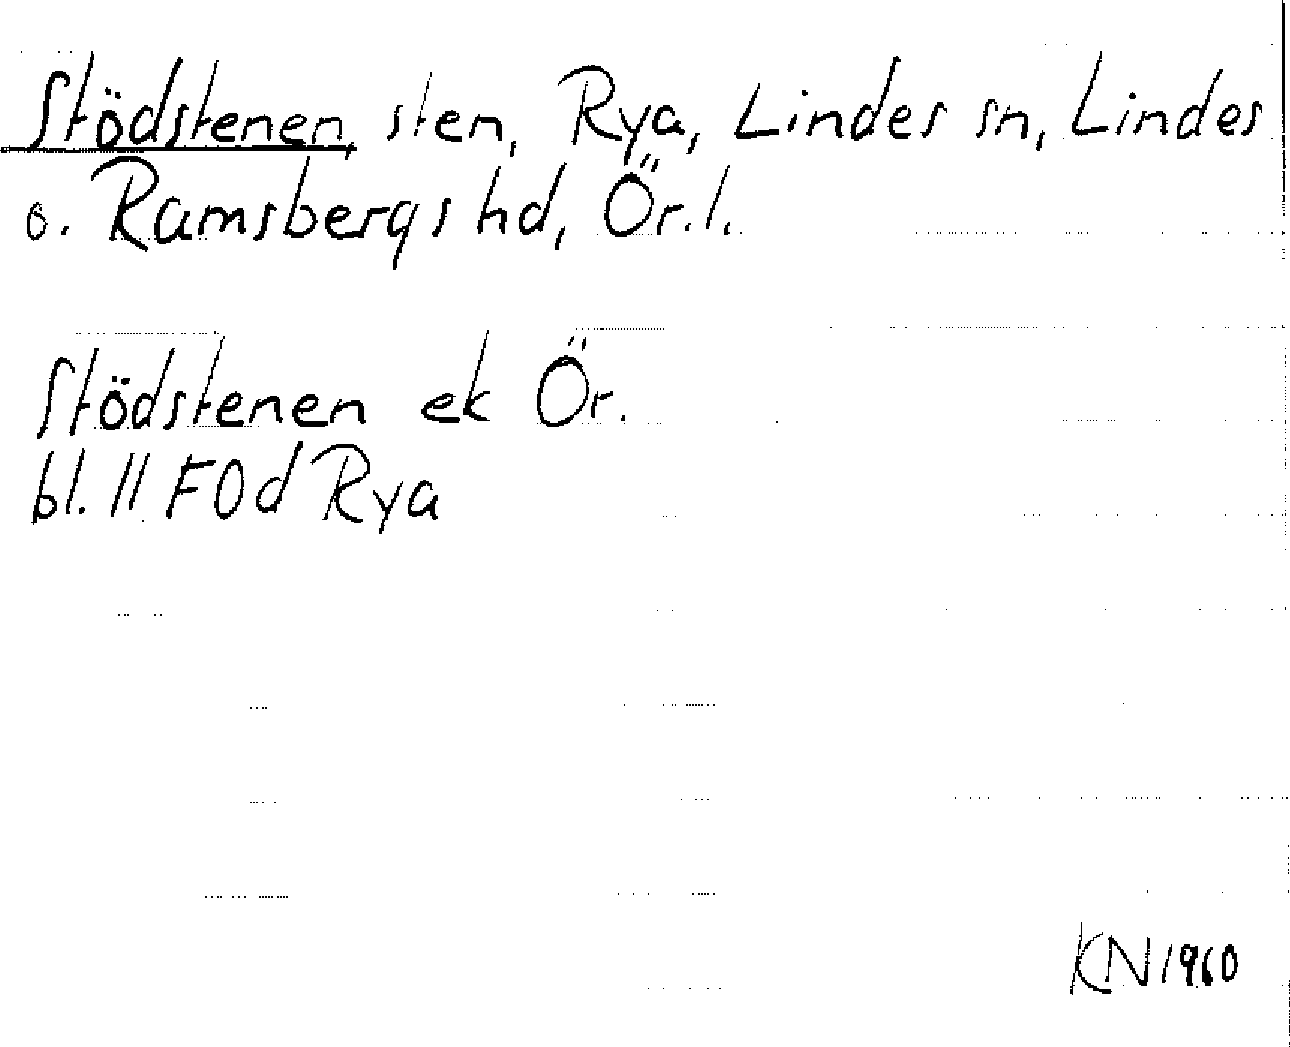 Stödstenen, sten, Rya, Lindes sn, Lindes
o. Ramsbergs hd, Ör.l.
Stödstenen ek Ör.
bl. 11 FOd Rya
KN 1960